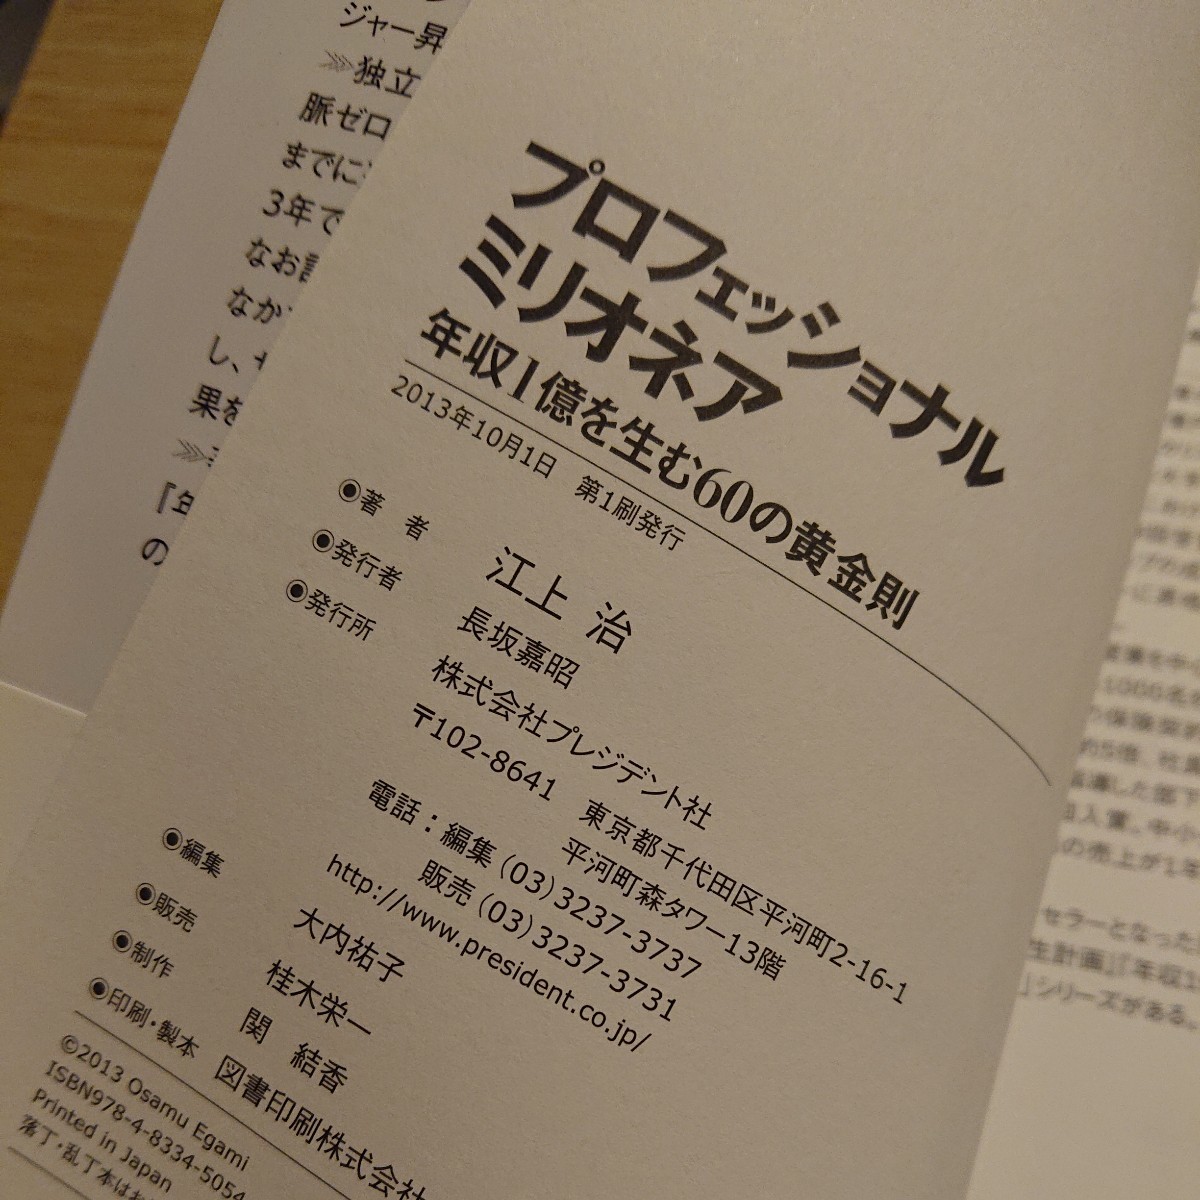 プロフェッショナル
ミリオネア
年収1億を生む60の黄金則
2013年10月1日 第1刷発行
◉著 者 江上 治
◉発行者 長坂嘉昭
◉発行所 株式会社プレジデント社
〒102-8641 東京都千代田区平河町2-16-1
平河町森タワー13階
電話:編集(03)3237-3737
販売(03)3237-3731
http://www.president.co.jp/
◉編集 大内祐子
◉販売 桂木栄一
◉制作 関 結香
◉印刷・製本 図書印刷株式会社
©2013 Osamu Egami
ISBN978-4-8334-5054
Printed in Japan
落丁・乱丁本はお
ジャー昇
独立
脈ゼロ
までに
3年で
なお
なか
し、
果を
『年
の
業を中
1000名
の保険契約
の5倍、社員
指導した部下
回入賞。中小
の売上が1年
セラーとなった
生計画』『年収1
』シリーズがある。